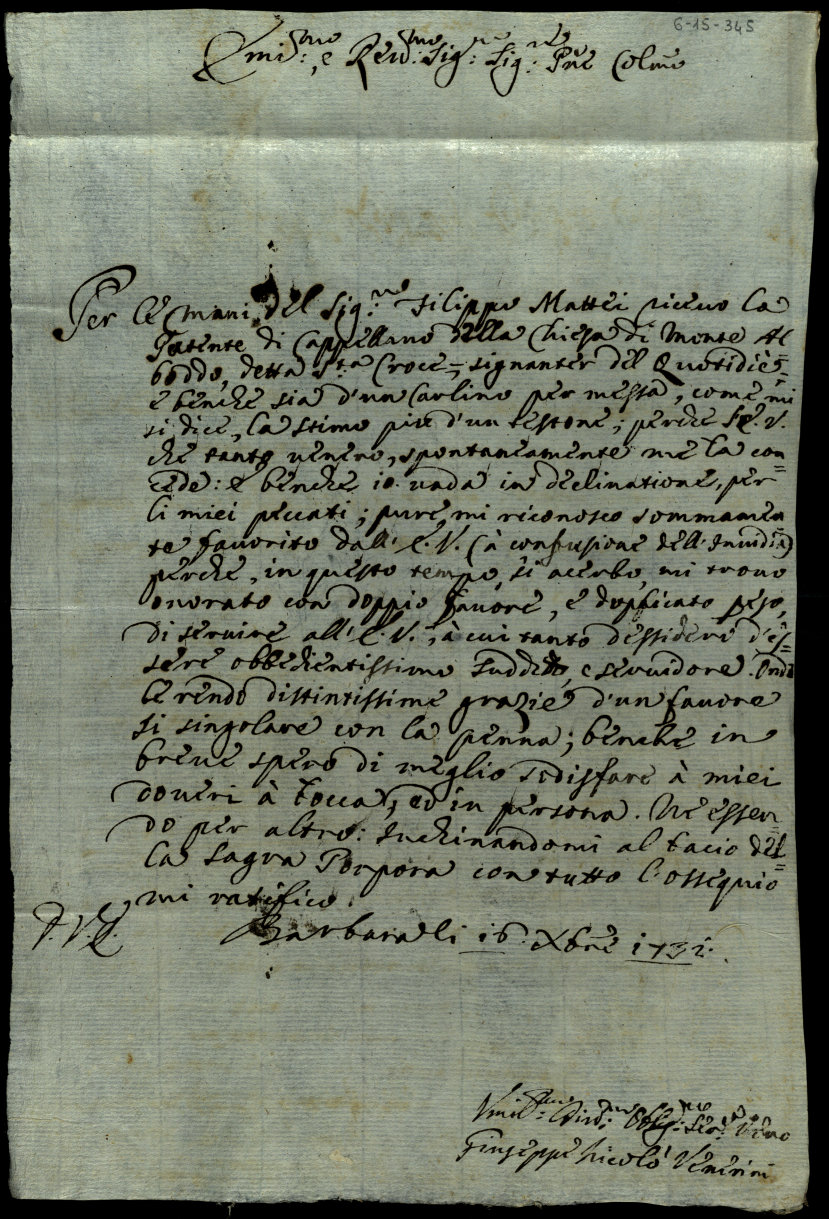 6-15-345
Emi:mo, e Rev:mo Sig:re Sig:re Pñe Colmo
Per le mani del Sig:re Filippo Mattei ricevo la
Patente di Cappellano della Chiesa di Monte Al
boddo, detta S:ta Croce, signanter del Quotidie,=
e benche sia d'un Carlino per messa, come mi
si dice, la stimo più d'un testone; perche l'E.V.
che tanto venero, spontaneamente me la con=
cede: e benche io vada in declinatione, per
li miei peccati; pure, mi riconosco sommamen=
te favorito dall'E.V. (à confusione dell'Invidia)
perche, in questo tempo, sì acerbo, mi trovo
onorato con doppio favore, e duplicato peso,
di servire all'E.V., à cui tanto desiderj d'es=
sere obbedientissimo suddito, e servidore. Onde
le rendo distintissime grazie d'un favore
sì singolare con la penna; benche in
breve spero di meglio sodisfare à miei
doveri à bocca, ed in persona. Ne essen
do per altro: Inchinandomi al bacio del=
la Sagra Porpora con tutto l'ossequio
mi ratifico
D.V.E. Barbara li 16. Xbre 1731.
Umil:mo Div:mo Obblig:mo Ser:re Vero
Giuseppe Nicolò Venerini